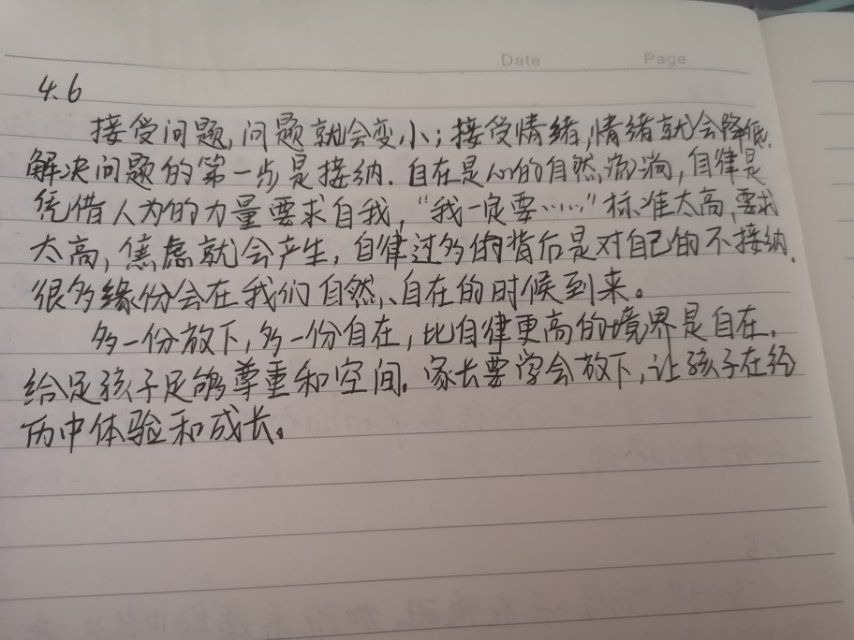 Date Page
4.6
接受问题,问题就会变小;接受情绪,情绪就会降低.
解决问题的第一步是接纳.自在是心的自然流淌,自律是
凭借人为的力量要求自我,“我一定要……”标准太高,要求
太高,焦虑就会产生,自律过多的背后是对自己的不接纳.
很多缘份会在我们自然、自在的时候到来。
多一份放下,多一份自在,比自律更高的境界是自在.
给足孩子足够尊重和空间.家长要学会放下,让孩子在经
历中体验和成长。